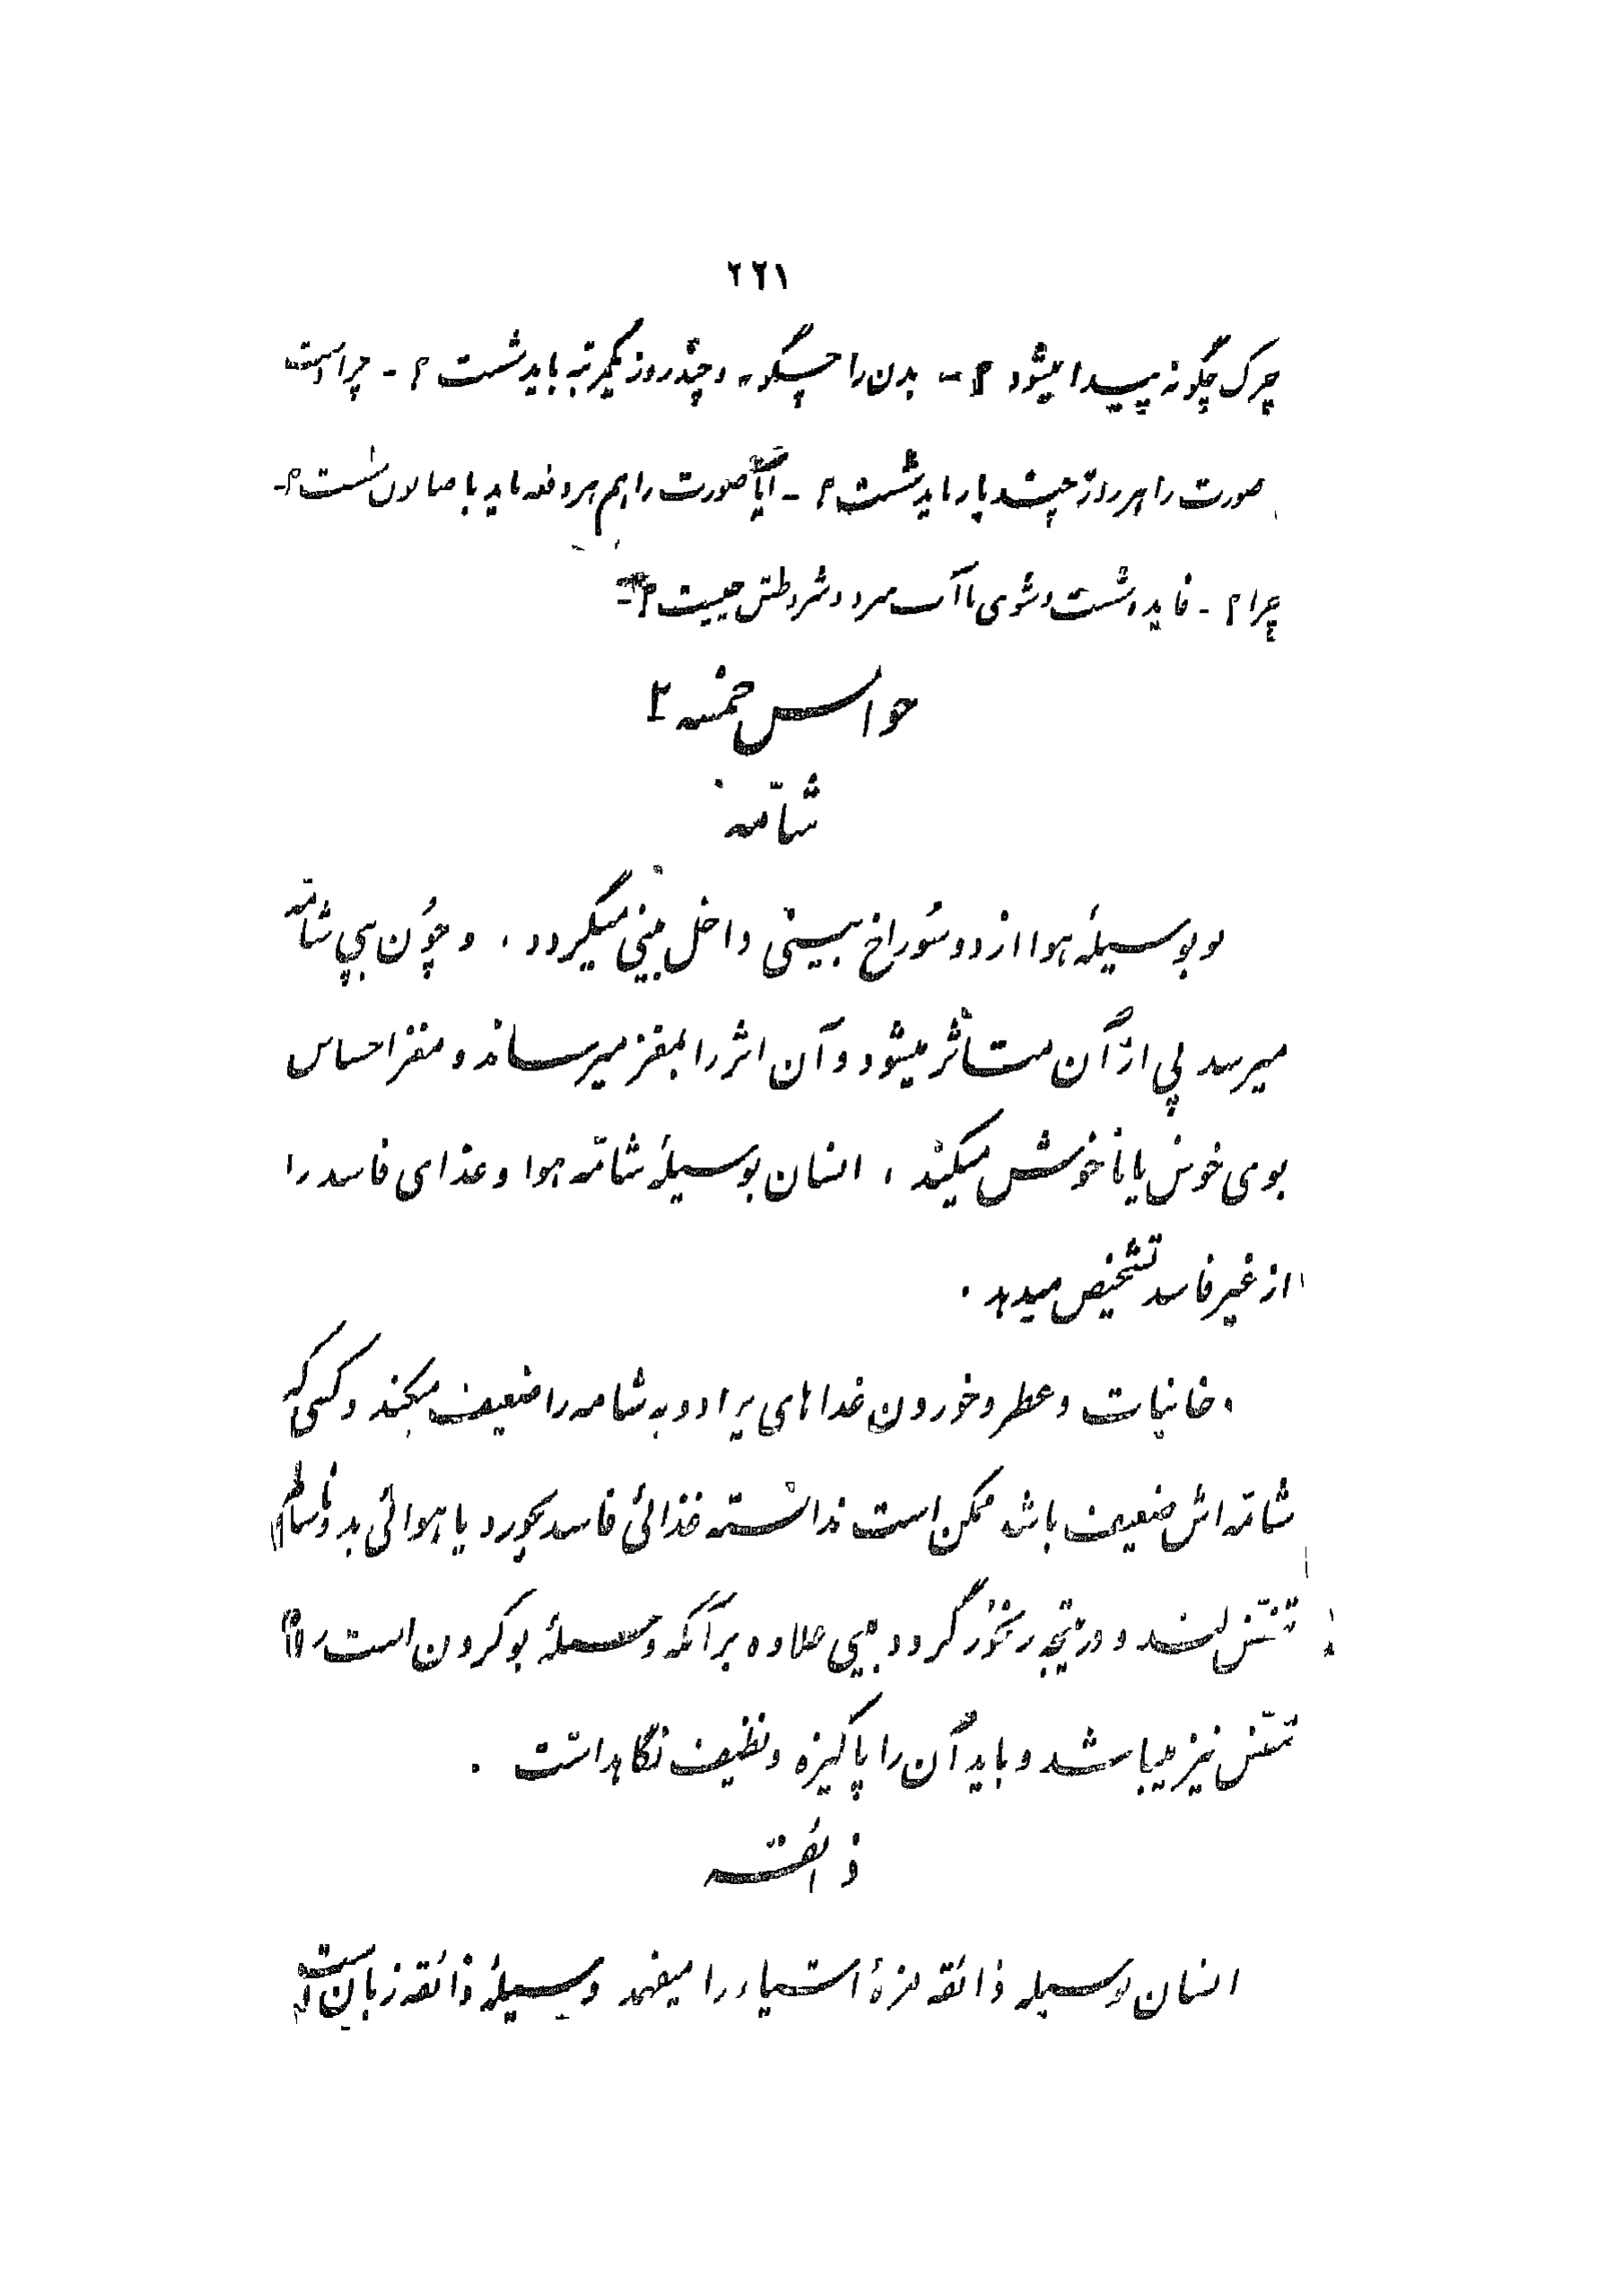 ۲۲۱
چرک چگونه پیدا میشود ؟ - بدن را چگونه و چند روز یکمرتبه باید شست ؟ - چرا
صورت را هر روز چند بار باید شست ؟ - آیا صورت را هم هر دفعه باید با صابون شست ؟ -
چرا ؟ - فایده شست و شوی با آب سرد و شروطش چیست ؟ -
حواس خمسه ۲
شامّه
بو بوسیلهٔ هوا از دو سوراخ بینی داخل بینی میگردد ، و چون بپی شامّه
میرسد پی از آن متأثر میشود و آن اثر را بمغز میرساند و مغز احساس
بوی خوش یا ناخوش میکند ، انسان بوسیلهٔ شامّه هوا و غذای فاسد را
از غیر فاسد تشخیص میدهد .
دخانیات و عطر و خوردن غذاهای پر ادویه شامه را ضعیف میکند و کسی که
شامّه اش ضعیف باشد ممکن است ندانسته غذائی فاسد بخورد یا هوائی بد و ناسالم
تنفّس کند و در نتیجه رنجور گردد بینی علاوه بر آنکه وسیلهٔ بو کردن است راه
تنفّس نیز میباشد و باید آن را پاکیزه و نظیف نگاهداشت .
ذائقه
انسان بوسیله ذائقه مزهٔ اشیاء را میفهمد وسیلهٔ ذائقه زبان است